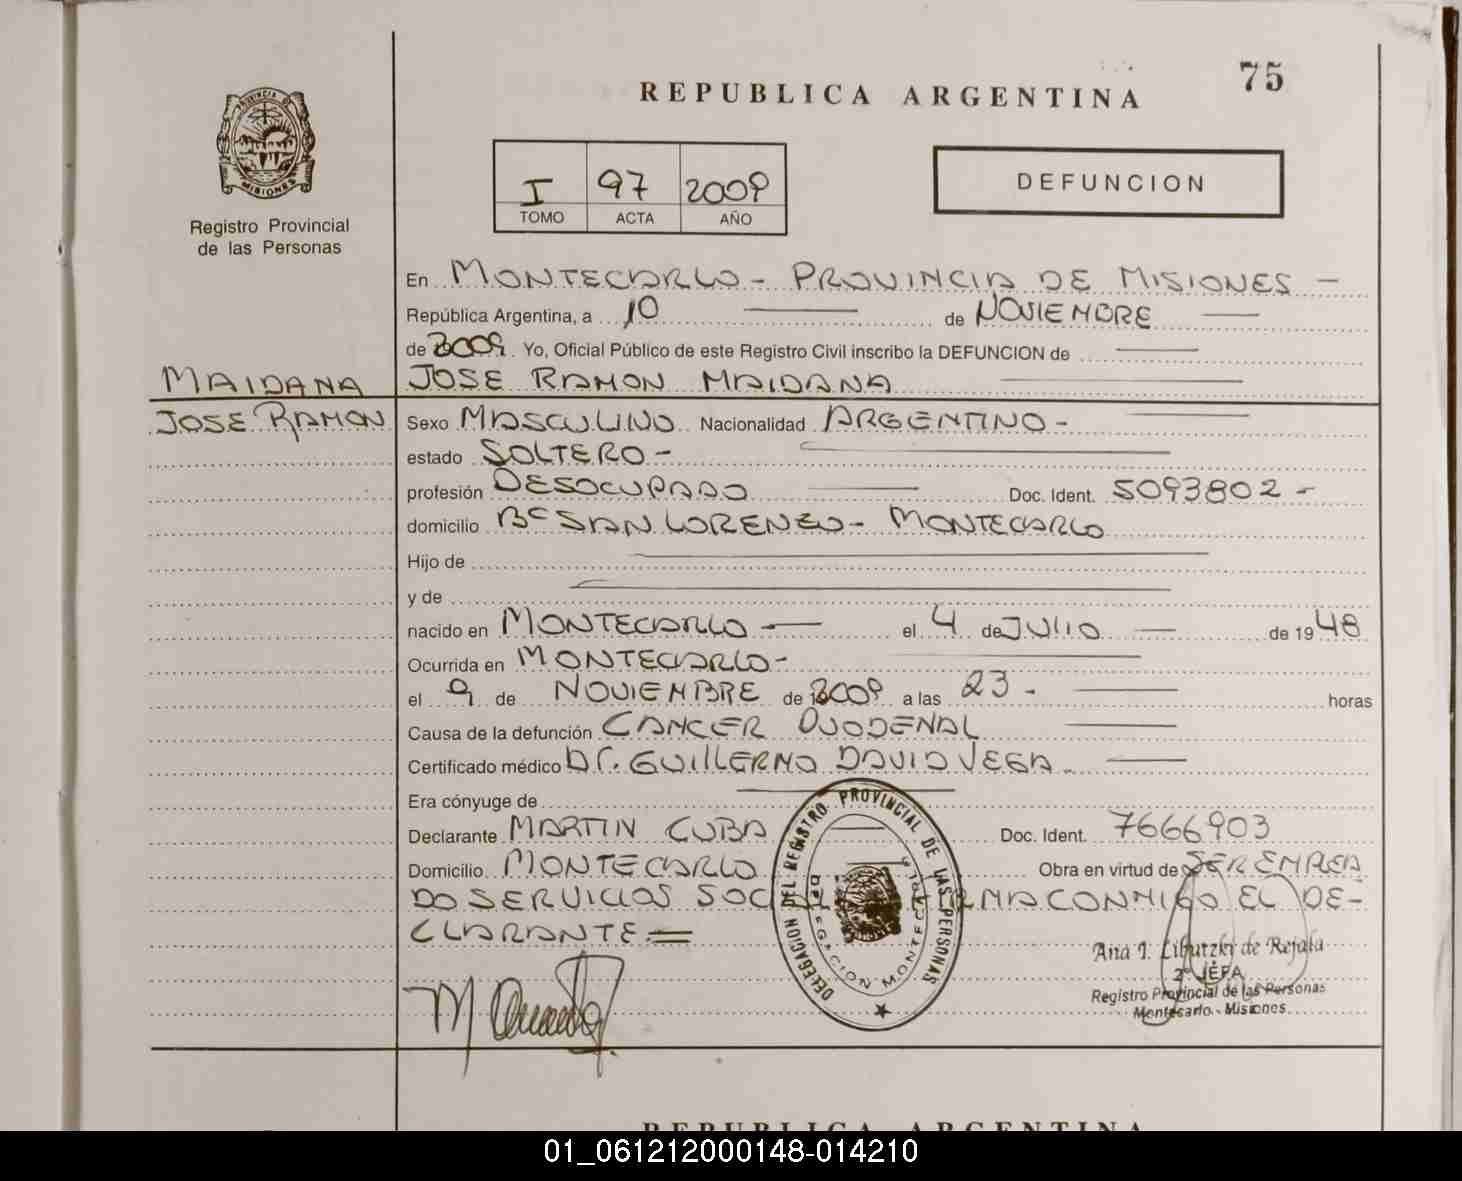 75
REPUBLICA ARGENTINA
PROVINCIA DE
MISIONES
Registro Provincial
de las Personas
I 97 2009
TOMO ACTA AÑO
DEFUNCION
En MONTECARLO - PROVINCIA DE MISIONES -
República Argentina, a 10 de NOVIEMBRE
de 2009. Yo, Oficial Público de este Registro Civil inscribo la DEFUNCION de
MAIDANA JOSE RAMON MAIDANA
JOSE RAMON Sexo MASCULINO Nacionalidad ARGENTINO -
estado SOLTERO -
profesión DESOCUPADO Doc. Ident. 5093802 -
domicilio Bº SAN LORENZO - MONTECARLO
Hijo de
y de
nacido en MONTECARLO - el 4 de JULIO - de 1948
Ocurrida en MONTECARLO -
el 9 de NOVIEMBRE de 2009 a las 23 - horas
Causa de la defunción CANCER DUODENAL
Certificado médico Dr. GUILLERMO DAVID VEGA -
Era cónyuge de
Declarante MARTIN CUBA Doc. Ident. 7666903
Domicilio MONTECARLO Obra en virtud de SER EMPLEA
DO SERVICIOS SOC FIRMA CONMIGO EL DE-
CLARANTE =
DELEGACION DEL REGISTRO PROVINCIAL DE LAS PERSONAS
DELEGACION MONTECARLO
Ana I. Libutzki de Rejala
2º JEFA
Registro Provincial de las Personas
Montecarlo - Misiones
REPUBLICA ARGENTINA
01_061212000148-014210